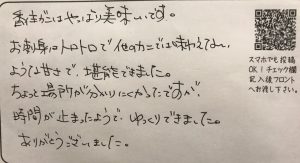 香住ガニはやっぱり美味しいです。
お刺身はトロトロで他のカニでは味わえない
ような甘さで、堪能できました。
ちょっと場所が分かりにくかったですが、
時間が止まったようで、ゆっくりできました。
ありがとうございました。
スマホでも投稿
OK！チェック欄
記入後フロント
へお渡し下さい。